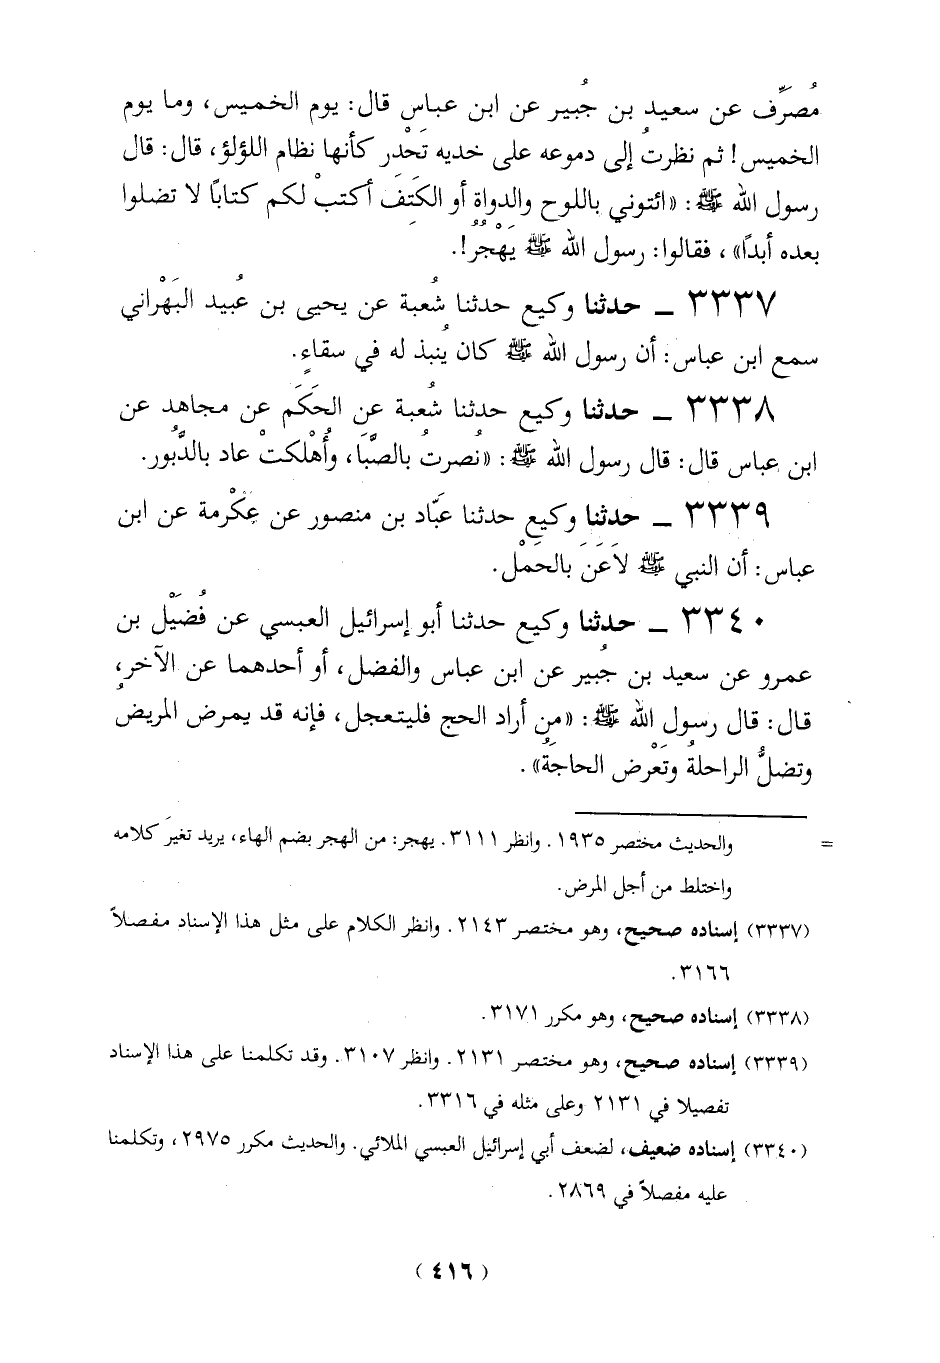 مُصَرِّف عن سعيد بن جُبير عن ابن عباس قال: يوم الخميس، وما يوم
الخميس! ثم نظرتُ إلى دموعه على خديه تَحْدر كأنها نظام اللؤلؤ، قال: قال
رسول الله ﷺ: «ائتوني باللوح والدواة أو الكَتِفَ أكتبْ لكم كتابًا لا تضلوا
بعده أبدًا»، فقالوا: رسول الله ﷺ يَهْجُر!.
٣٣٣٧ ــ حدثنا وكيع حدثنا شُعبة عن يحيى بن عُبيد البَهْراني
سمع ابن عباس: أن رسول الله ﷺ كان يُنبذ له في سقاءٍ.
٣٣٣٨ ــ حدثنا وكيع حدثنا شُعبة عن الحَكَم عن مجاهد عن
ابن عباس قال: قال رسول الله ﷺ: «نُصرتُ بالصَّبَا، وأُهْلكتْ عاد بالدَّبُور.
٣٣٣٩ ــ حدثنا وكيع حدثنا عَبَّاد بن منصور عن عِكْرمة عن ابن
عباس: أن النبي ﷺ لاَعَنَ بالحَمْل.
٣٣٤٠ ــ حدثنا وكيع حدثنا أبو إسرائيل العبسي عن فُضَيْل بن
عمرو عن سعيد بن جُبير عن ابن عباس والفضل، أو أحدهما عن الآخر،
قال: قال رسول الله ﷺ: «من أراد الحج فليتعجل، فإنه قد يمرض المريض
وتضلُّ الراحلةُ وتَعْرِض الحاجةُ».
= والحديث مختصر ١٩٣٥. وانظر ٣١١١. يهجر: من الهجر بضم الهاء، يريد تغيرَ كلامه
واختلط من أجل المرض.
(٣٣٣٧) إسناده صحيح، وهو مختصر ٢١٤٣. وانظر الكلام على مثل هذا الإسناد مفصلاً
٣١٦٦.
(٣٣٣٨) إسناده صحيح، وهو مكرر ٣١٧١.
(٣٣٣٩) إسناده صحيح، وهو مختصر ٢١٣١. وانظر ٣١٠٧. وقد تكلمنا على هذا الإسناد
تفصيلا في ٢١٣١ وعلى مثله في ٣٣١٦.
(٣٣٤٠) إسناده ضعيف، لضعف أبي إسرائيل العبسي الملائي. والحديث مكرر ٢٩٧٥، وتكلمنا
عليه مفصلاً في ٢٨٦٩.
(٤١٦)